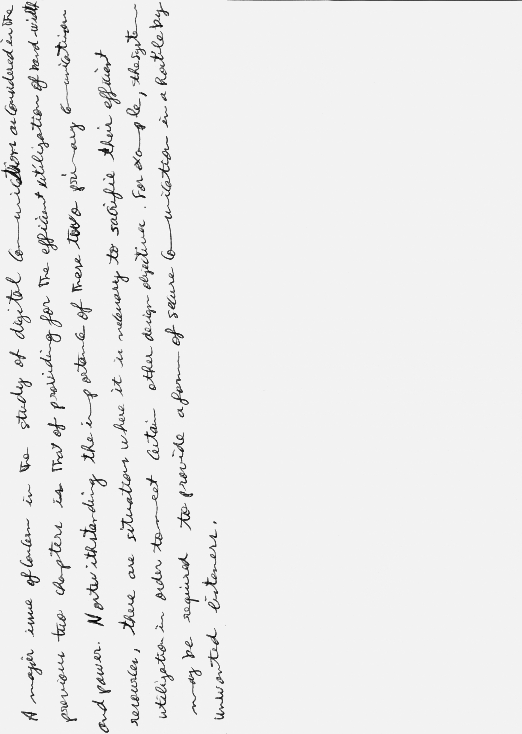 A major issue of concern in the study of digital communications as considered in the
previous two chapters is that of providing for the efficient utilization of band width
and power. Notwithstanding the importance of these two primary communication
resources, there are situations where it is necessary to sacrifie their efficient
utilization in order to meet certain other design objectives. For example, the system
may be required to provide a form of secure communication in a hostile by
unwanted listeners.